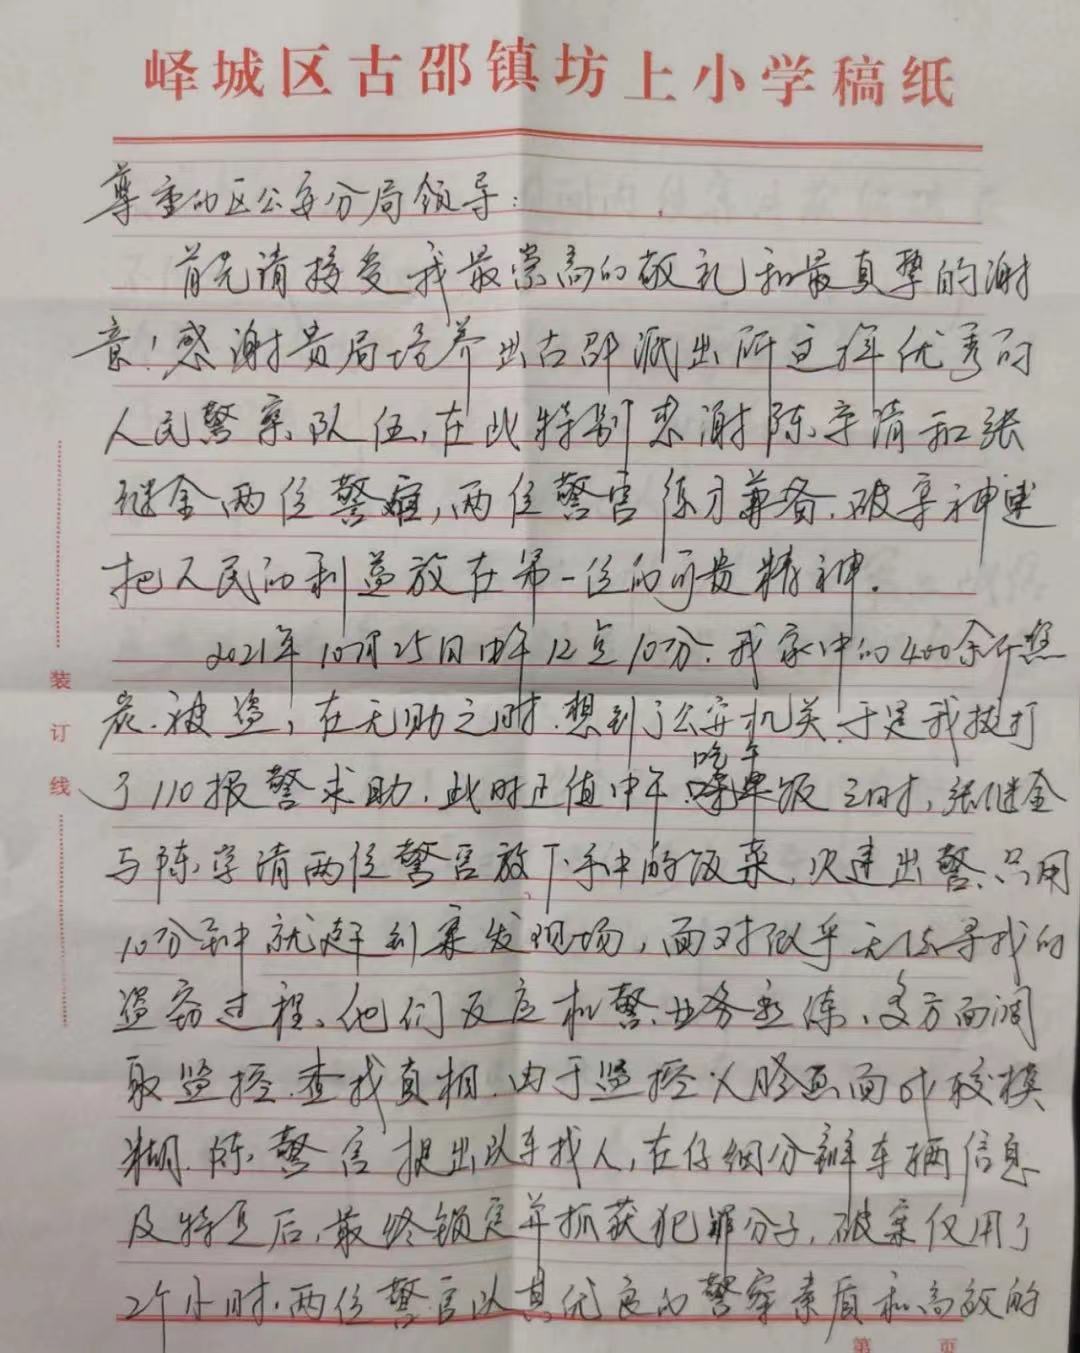 峄城区古邵镇坊上小学稿纸
尊重的区公安分局领导：
首先请接受我最崇高的敬礼和最真挚的谢
意！感谢贵局培养出古邵派出所这样优秀的
人民警察队伍，在此特别感谢陈学清和张
继金两位警官，两位警官练才兼备.破案神速
把人民的利益放在第一位的可贵精神.
2021年10月25日中午12点10分.我家中的400余斤
炭.被盗，在无助之时.想到了公安机关.于是我拨打
了110报警求助.此时正值中午吃午饭之时，张继金
与陈学清两位警官放下手中的饭菜，火速出警.只用
10分钟就赶到案发现场，面对似乎无法寻找的
盗窃过程、他们反应机警、业务熟练、多方面调
取监控.查找真相.由于监控人脸画面比较模
糊.陈警官提出以车找人，在仔细分辨车辆信息
及特征后，最终锁定并抓获犯罪分子，破案仅用了
2个小时.两位警官以其优良的警察素质和高效的
装
订
线
第 页